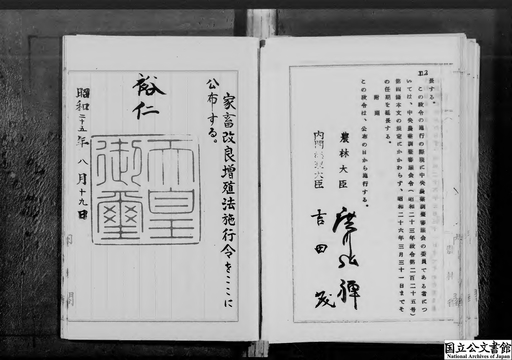 長する。
この政令の施行の際現に中央農業調整審議会の委員である者につ
いては、中央農業調整審議会令（昭和二十三年政令第二百二十五号）
第四條本文の規定にかかわらず、昭和二十六年三月三十一日までそ
の任期を延長する。
附則
この政令は、公布の日から施行する。
農林大臣
廣川弘禪
内閣総理大臣
吉田茂
家畜改良増殖法施行令をここに
公布する。
裕仁
天皇
御璽
昭和二十五年八月十九日
国立公文書館
National Archives of Japan